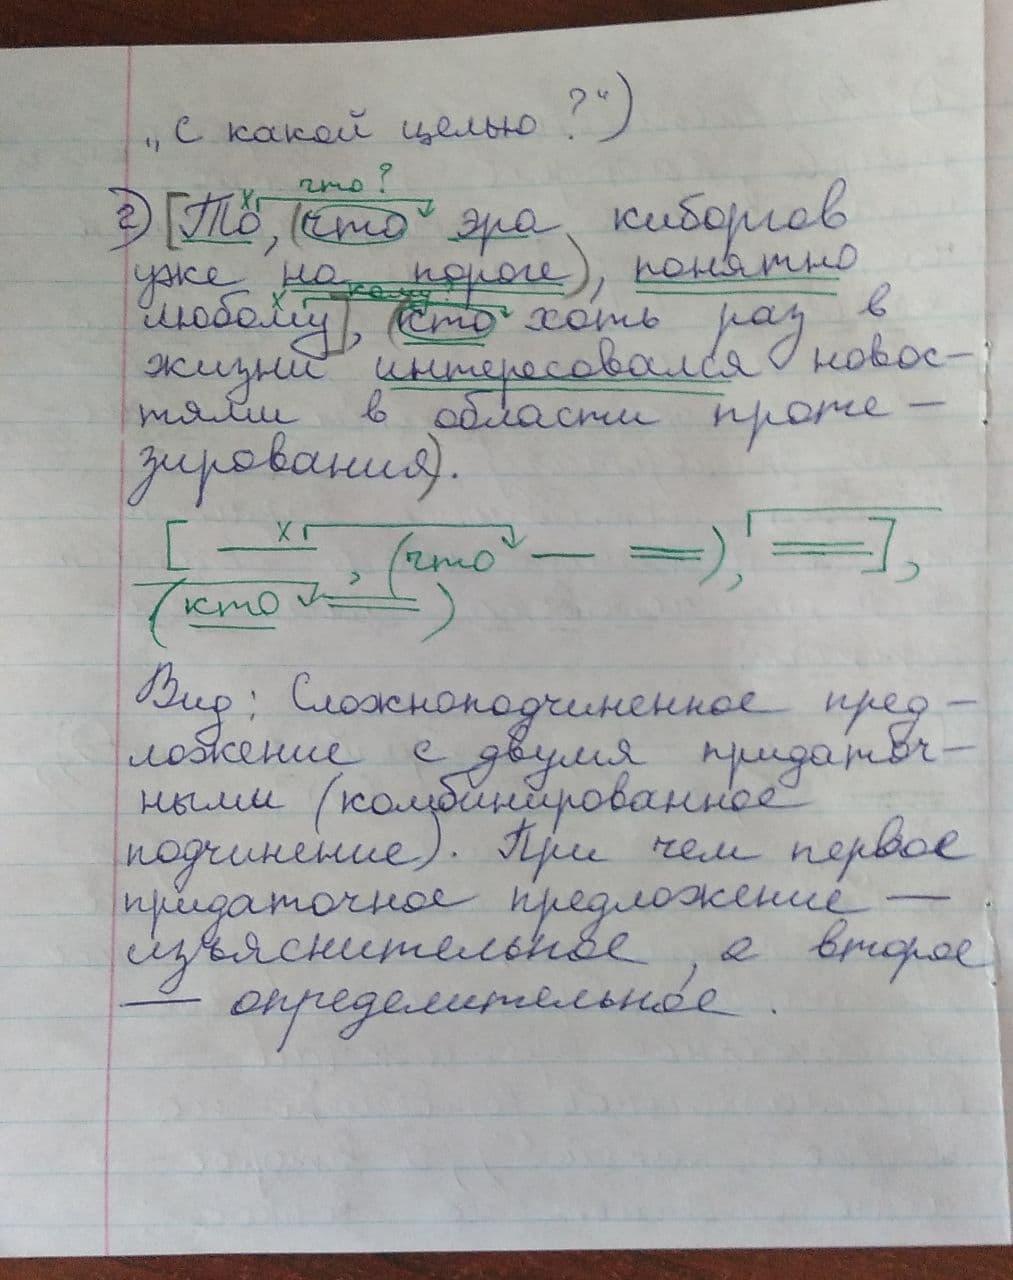 „С какой целью?“)
что?
г) [То, (что эра киборгов
уже на пороге), понятно
кому?
любому], (кто хоть раз в
жизни интересовался новос-
тями в области проте-
зирования).
[ — x, (что — =), = ],
(кто =)
Вид: Сложноподчиненное пред-
ложение с двумя придаточ-
ными (комбинированное
подчинение). При чем первое
придаточное предложение —
изъяснительное, а второе
— определительное.